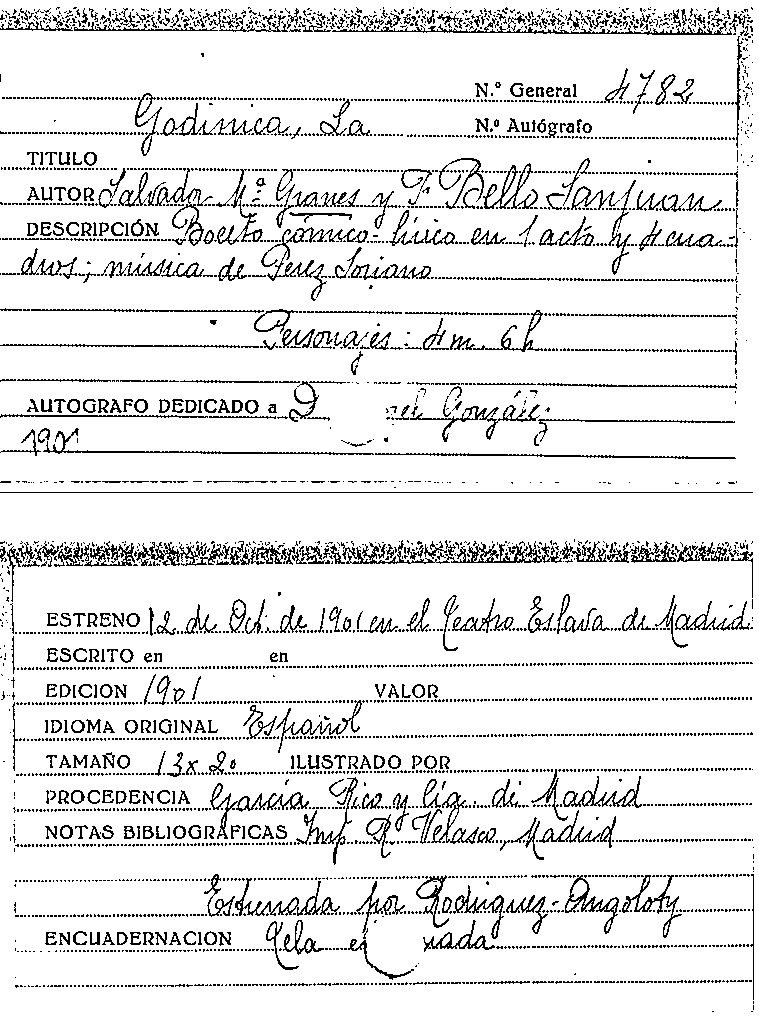 N.º General 4782
Godinica, La
N.º Autógrafo
TITULO
AUTOR Salvador Mª Granes y F. Bello Sanjuan
DESCRIPCIÓN Boceto cómico-lírico en 1 acto y 4 cua-
dros; música de Perez Soriano
Personajes: 4 m. 6 h
AUTOGRAFO DEDICADO a D González
1901
ESTRENO 12 de Oct. de 1901 en el Teatro Eslava de Madrid
ESCRITO en en
EDICION 1901 VALOR
IDIOMA ORIGINAL Español
TAMAÑO 13 x 20 ILUSTRADO POR
PROCEDENCIA García Rico y Cía. de Madrid
NOTAS BIBLIOGRAFICAS Imp. R. Velasco, Madrid
Estrenada por Rodriguez-Angoloty
ENCUADERNACION Tela